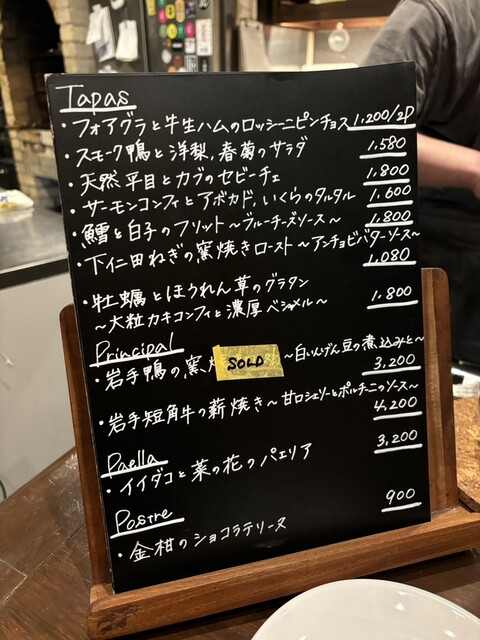 Tapas
・フォアグラと牛生ハムのロッシーニピンチョス 1,200/2P
・スモーク鴨と洋梨、春菊のサラダ 1,580
・天然平目とカブのセビーチェ 1,800
・サーモンコンフィとアボカド、いくらのタルタル 1,600
・鱈と白子のフリット〜ブルーチーズソース〜 1,800
・下仁田ねぎの窯焼きロースト〜アンチョビバターソース〜
1,080
・牡蠣とほうれん草のグラタン
〜大粒カキコンフィと濃厚ベシャメル〜 1,800
Principal
・岩手鴨の窯焼 SOLD 〜白いんげん豆の煮込みと〜
3,200
・岩手短角牛の薪焼き〜甘口シェリーとポルチーニのソース〜
4,200
Paella
・イイダコと菜の花のパエリア 3,200
Postre
・金柑のショコラテリーヌ 900